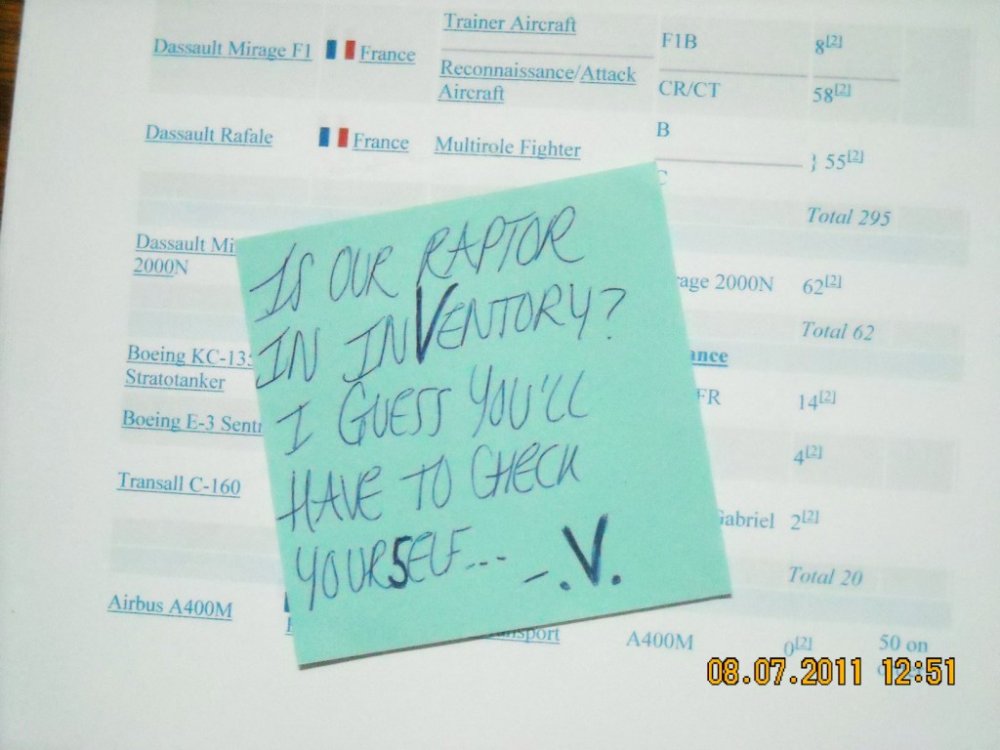 Trainer Aircraft F1B 8[2]
Dassault Mirage F1 France
Reconnaissance/Attack Aircraft CR/CT 58[2]
B
Dassault Rafale France Multirole Fighter } 55[2]
Total 295
Dassault
2000N 2000N 62[2]
Total 62
Boeing
Stratotanker 14[2]
Boeing E-3 4[2]
Transall C-160 Gabriel 2[2]
Total 20
Airbus A400M A400M 0[2] 50 on
IS OUR RAPTOR
IN INVENTORY?
I GUESS YOU'LL
HAVE TO CHECK
YOUR5ELF... –.V.
08.07.2011 12:51